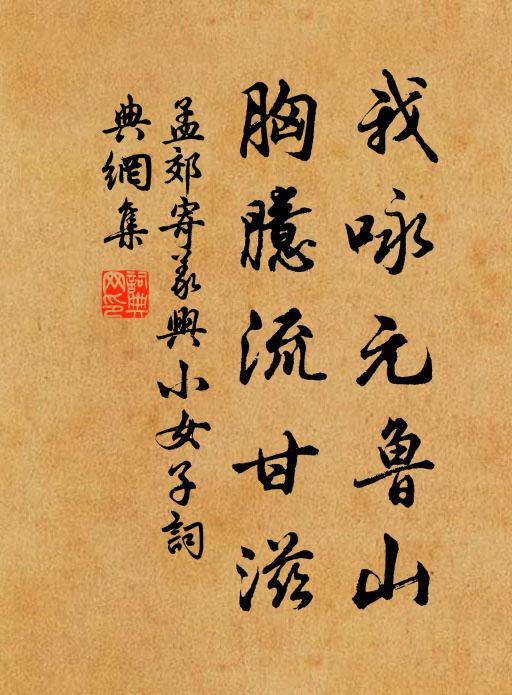 我咏元鲁山
胸臆流甘滋
孟郊寄义興小女子詞
典網集
詞典网印